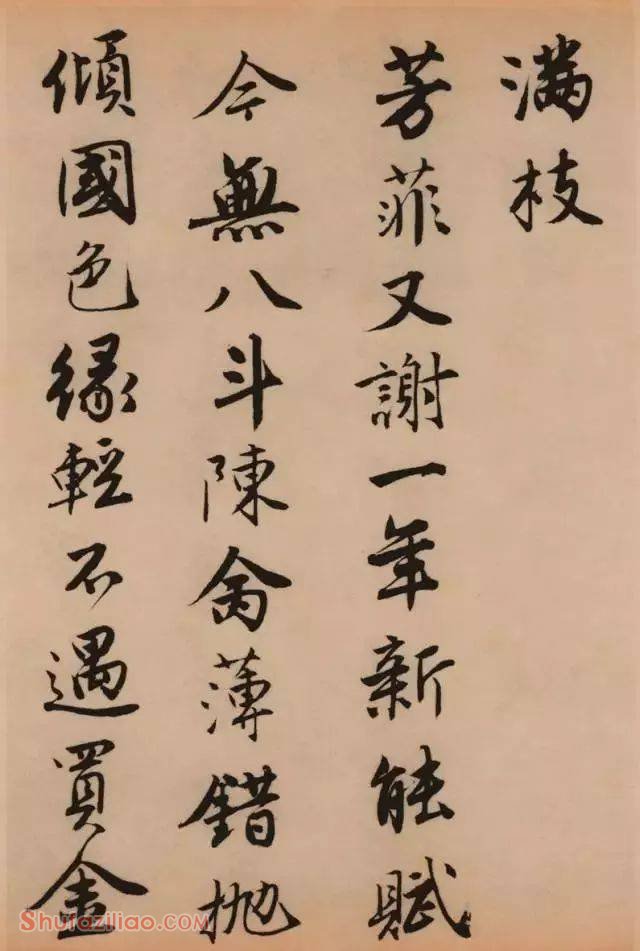 满枝
芳菲又謝一年新能賦
今無八斗陳禽薄錯抛
傾國色緣輕不遇買金
Shufaziliao.com